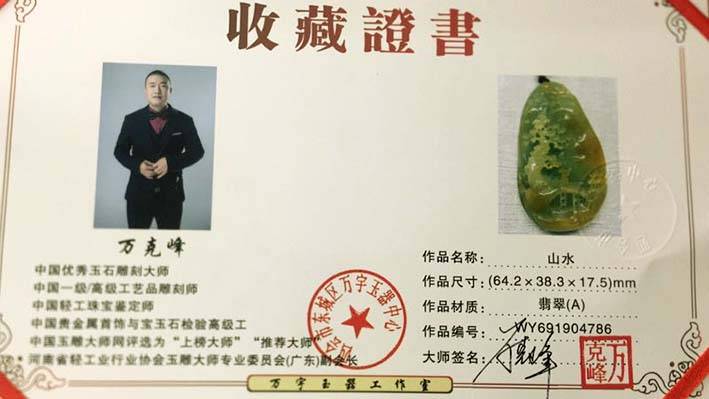 收藏證書
万克峰
中国优秀玉石雕刻大师
中国一级/高级工艺品雕刻师
中国轻工珠宝鉴定师
中国贵金属首饰与宝玉石检验高级工
中国玉雕大师网评选为“上榜大师”“推荐大师”
河南省轻工业行业协会玉雕大师专业委员会(广东)副会长
作品名称: 山水
作品尺寸: (64.2×38.3×17.5)mm
作品材质: 翡翠(A)
作品编号: WY691904786
大师签名:
万克峰
会市东城区万宇玉器中心
万宇玉器工作室